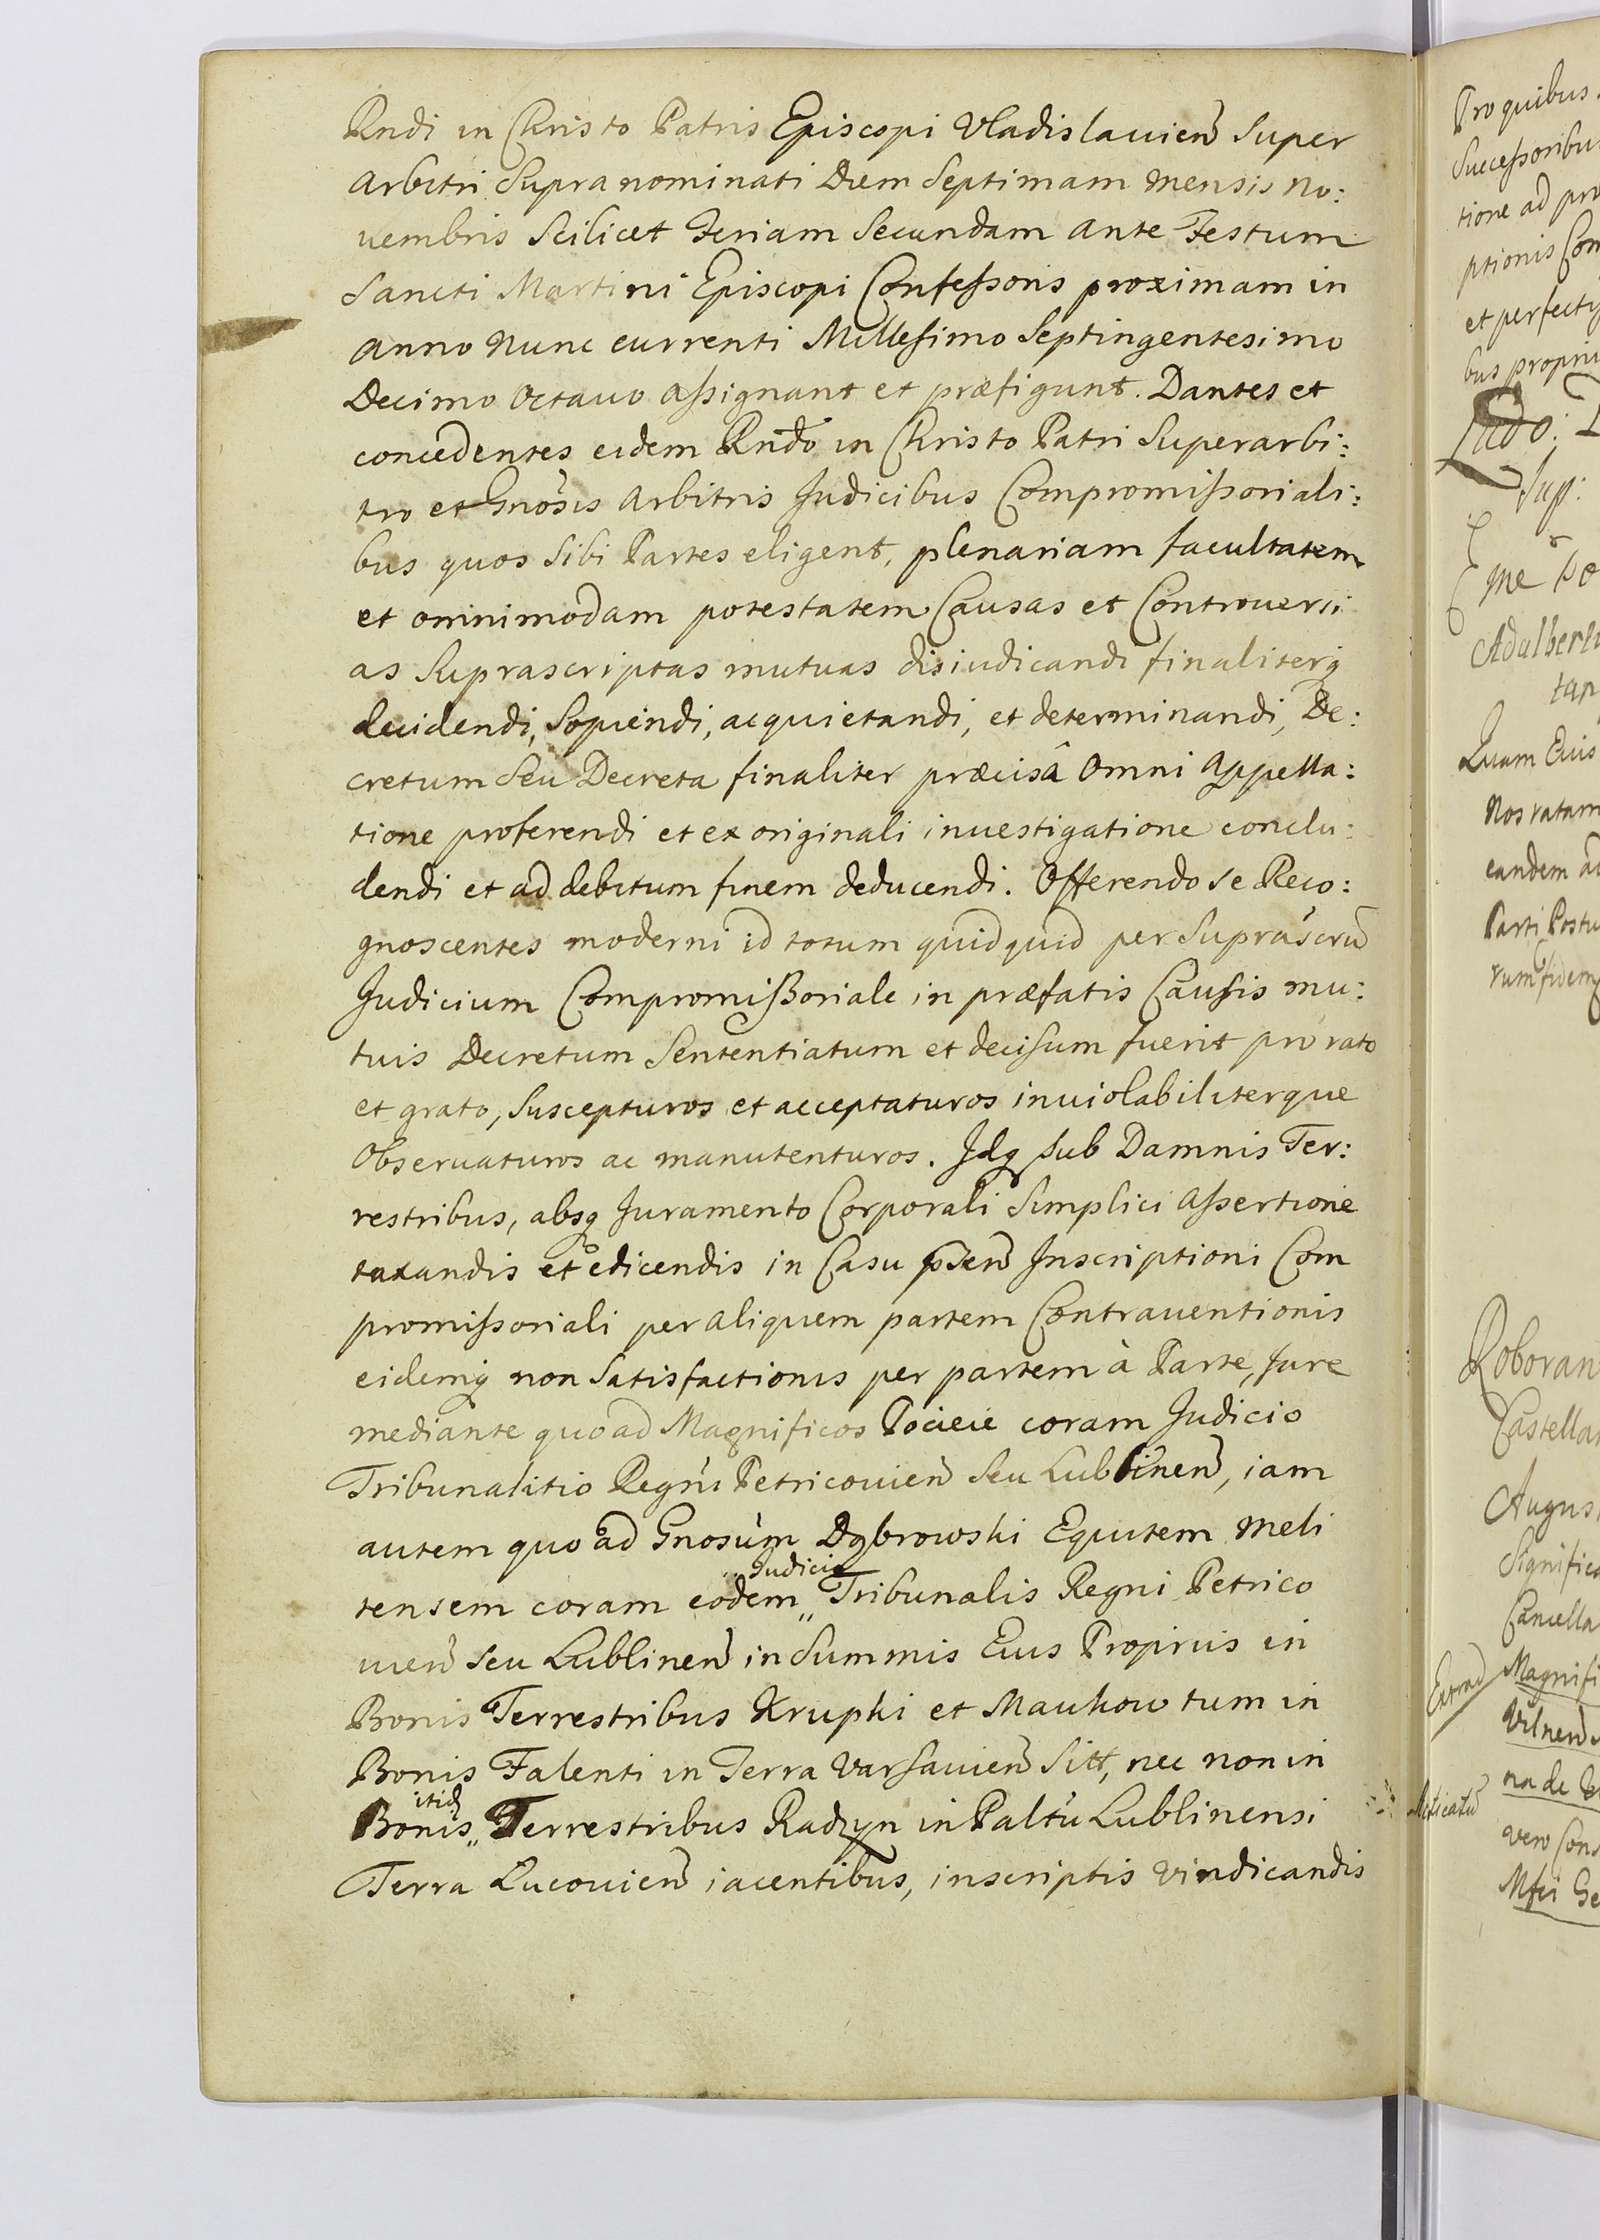 Rndi in Christo Patris Episcopi Vladislauien̄ Super
arbitri Supra nominati Diem Septimam mensis No:
uembris Scilicet Feriam Secundam ante Festum
Sancti Martini Episcopi Confeſsoris proximam in
anno nunc currenti Milleſimo Septingentesimo
Decimo Octauo aſsignant et præfigunt. Dantes et
concedentes eidem Rndo in Christo Patri Superarbi:
tro et Gnosis Arbitris Judicibus Compromiſsoriali:
bus quos Sibi Partes eligent, plenariam facultatem
et omnimodam potestatem Causas et Controuersi
as Suprascriptas mutuas disiudicandi finaliterq
decidendi, Sopiendi, acquietandi, et determinandi, De:
cretum Seu Decreta finaliter præcisâ Omni Appella:
tione proferendi et ex originali inuestigatione conclu:
dendi et ad debitum finem deducendi. Offerendo se Reco:
gnoscentes moderni id totum quidquid per Suprascrũ
Judicium Compromiſsoriale in præfatis Cauſis mu:
tuis Decretum Sententiatum et deciſum fuerit pro rato
et grato, Suscepturos et acceptaturos inuiolabiliterque
Obseruaturos ac manutenturos. Idq sub Damnis Ter:
restribus, absq Juramento Corporali Simplici aſsertione
taxandis et edicendis in Casu pn̄sen̄ Inscriptioni Com
promiſsoriali per aliquem partem Contrauentionis
eidemq non Satisfactionis per partem à Parte, Jure
mediante quo ad Magnificos Pocieie coram Judicio
Tribunalitio Regni Petricouien̄ Seu Lublinen̄, iam
autem quo ad Gnosum Dąbrowski Equitem Meli
Judicio
tensem coram eodem ,, Tribunalis Regni Petrico
uien̄ seu Lublinen̄ in Summis Eius Propriis in
Bonis Terrestribus Krupki et Maukow tum in
Bonis Falenti in Terra Varſauien̄ Sitt, nec non in
itid
Bonis ,, Terrestribus Radzyn in Paltũ Lublinensi
Terra Lucouien̄ iacentibus, inscriptis vindicandis
Pro quibus
Succeſsoribu
tione ad pro
ptionis Com
et perfecty
bus propri
Sup:
me
Adalbert
Quam Eius
Nos ratam
eandem
Parti Postu
rum fidem
Roboran
Castellan
August
Significa
Cancella
Extrad Magnifi
Vilnen̄
na de
vero Cons
Mfci Ge